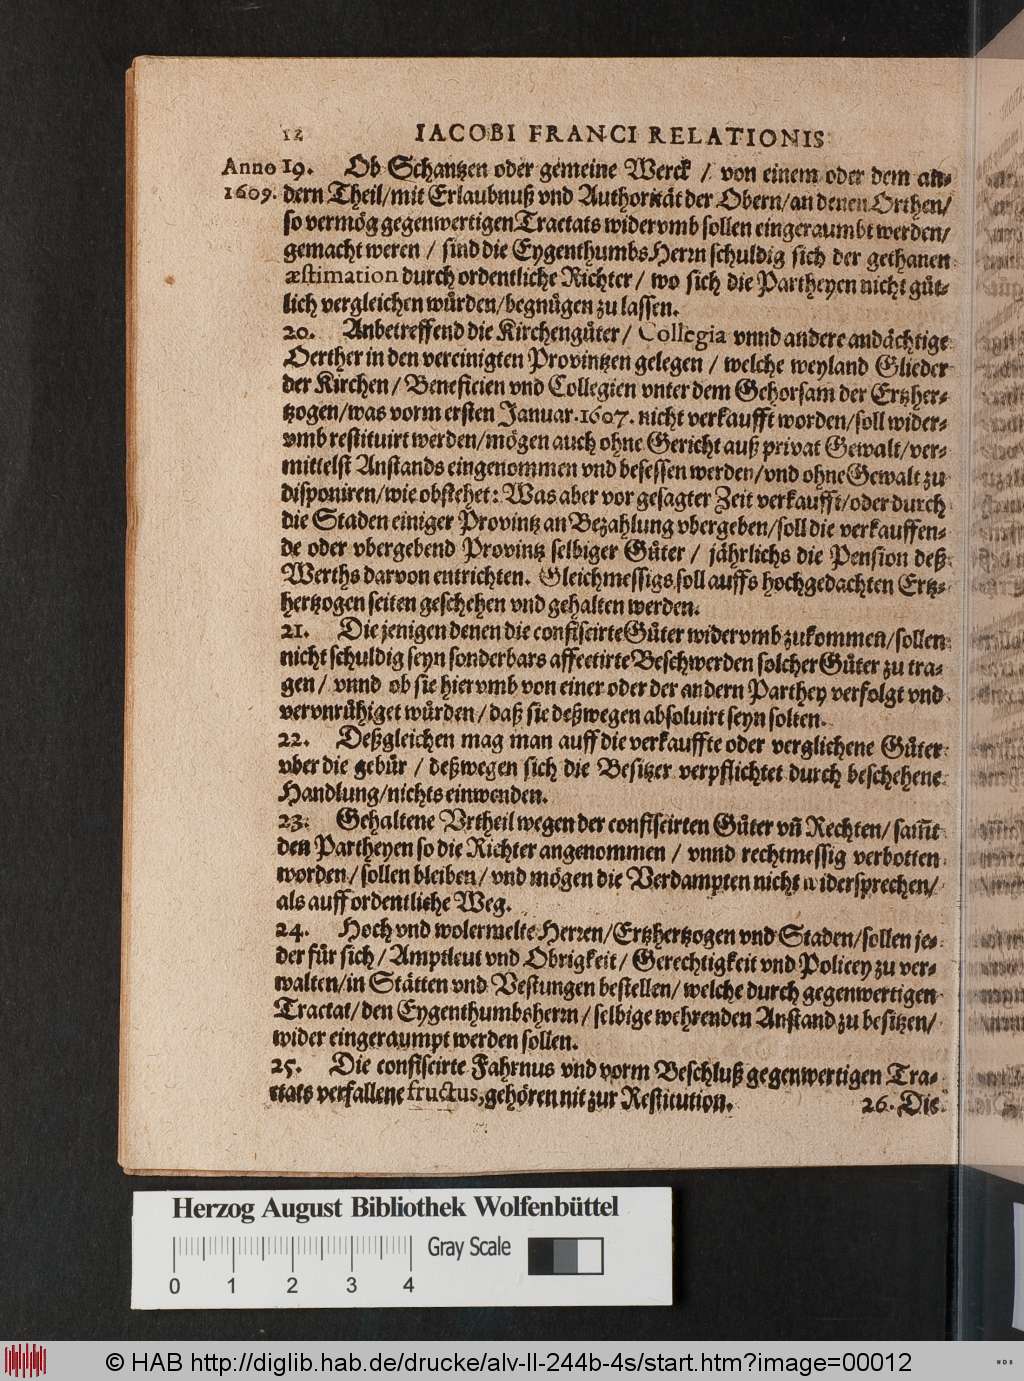 12 IACOBI FRANCI RELATIONIS
Anno 1609.
19. Ob Schantzen oder gemeine Werck / von einem oder dem an-
dern Theil/mit Erlaubnuß vnd Authoritåt der Obern/an denen Orthen/
so vermög gegenwertigen Tractats widervmb sollen eingeraumbt werden/
gemacht weren / sind die Eygenthumbs Herrn schuldig sich der gethanen
æstimation durch ordentliche Richter / wo sich die Partheyen nicht gůt-
lich vergleichen wůrden/begnůgen zu lassen.
20. Anbetreffend die Kirchengůter / Collegia vnnd andere andåchtige
Oerther in den vereinigten Provintzen gelegen / welche weyland Glieder
der Kirchen / Beneficien vnd Collegien vnter dem Gehorsam der Ertzher-
tzogen/was vorm ersten Januar. 1607. nicht verkaufft worden/soll wider-
vmb restituirt werden/mögen auch ohne Gericht auß privat Gewalt/ver-
mittelst Anstands eingenommen vnd besessen werden/vnd ohne Gewalt zu
disponiren/wie obstehet: Was aber vor gesagter Zeit verkaufft/oder durch
die Staden einiger Provintz an Bezahlung vbergeben/soll die verkauffen-
de oder vbergebend Provintz selbiger Gůter / jåhrlichs die Pension deß
Werths darvon entrichten. Gleichmessigs soll auffs hochgedachten Ertz-
hertzogen seiten geschehen vnd gehalten werden.
21. Die jenigen denen die confiscirte Gůter widervmb zukommen/sollen
nicht schuldig seyn sonderbars affectirte Beschwerden solcher Gůter zu tra-
gen / vnnd ob sie hiervmb von einer oder der andern Parthey verfolgt vnd
vervnrůhiget wůrden / daß sie deßwegen absoluirt seyn solten.
22. Deßgleichen mag man auff die verkauffte oder verglichene Gůter
vber die gebůr / deßwegen sich die Besitzer verpflichtet durch beschehene
Handlung/nichts einwenden.
23. Gehaltene Vrtheil wegen der confiscirten Gůter vñ Rechten/ sam̃t
den Partheyen so die Richter angenommen / vnnd rechtmessig verbotten
worden / sollen bleiben / vnd mögen die Verdampten nicht widersprechen/
als auff ordentliche Weg.
24. Hoch vnd wolermelte Herren/Ertzhertzogen vnd Staden/sollen je-
der fůr sich / Amptleut vnd Obrigkeit / Gerechtigkeit vnd Policey zu ver-
walten/in Ståtten vnd Vestungen bestellen / welche durch gegenwertigen
Tractat/den Eygenthumbsherrn / selbige wehrenden Anstand zu besitzen/
wider eingeraumpt werden sollen.
25. Die confiscirte Fahrnus vnd vorm Beschluß gegenwertigen Tra-
ctats verfallene fructus, gehören nit zur Restitution.
26. Die
Herzog August Bibliothek Wolfenbüttel
Gray Scale
0 1 2 3 4
© HAB http://diglib.hab.de/drucke/alv-ll-244b-4s/start.htm?image=00012